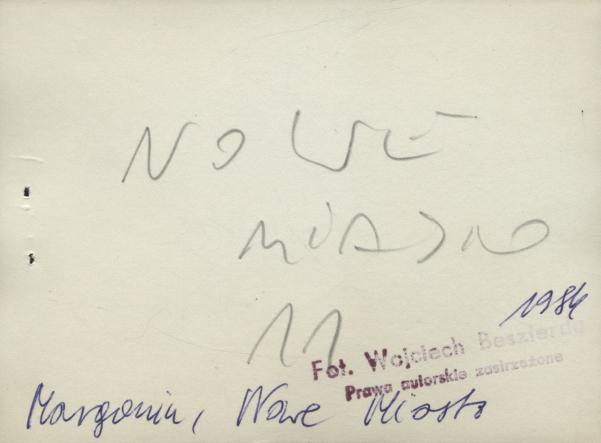 NOWE
MIASTO
11
1984
Fot. Wojciech Beszterda
Prawa autorskie zastrzeżone
Margonin, Nowe Miasto